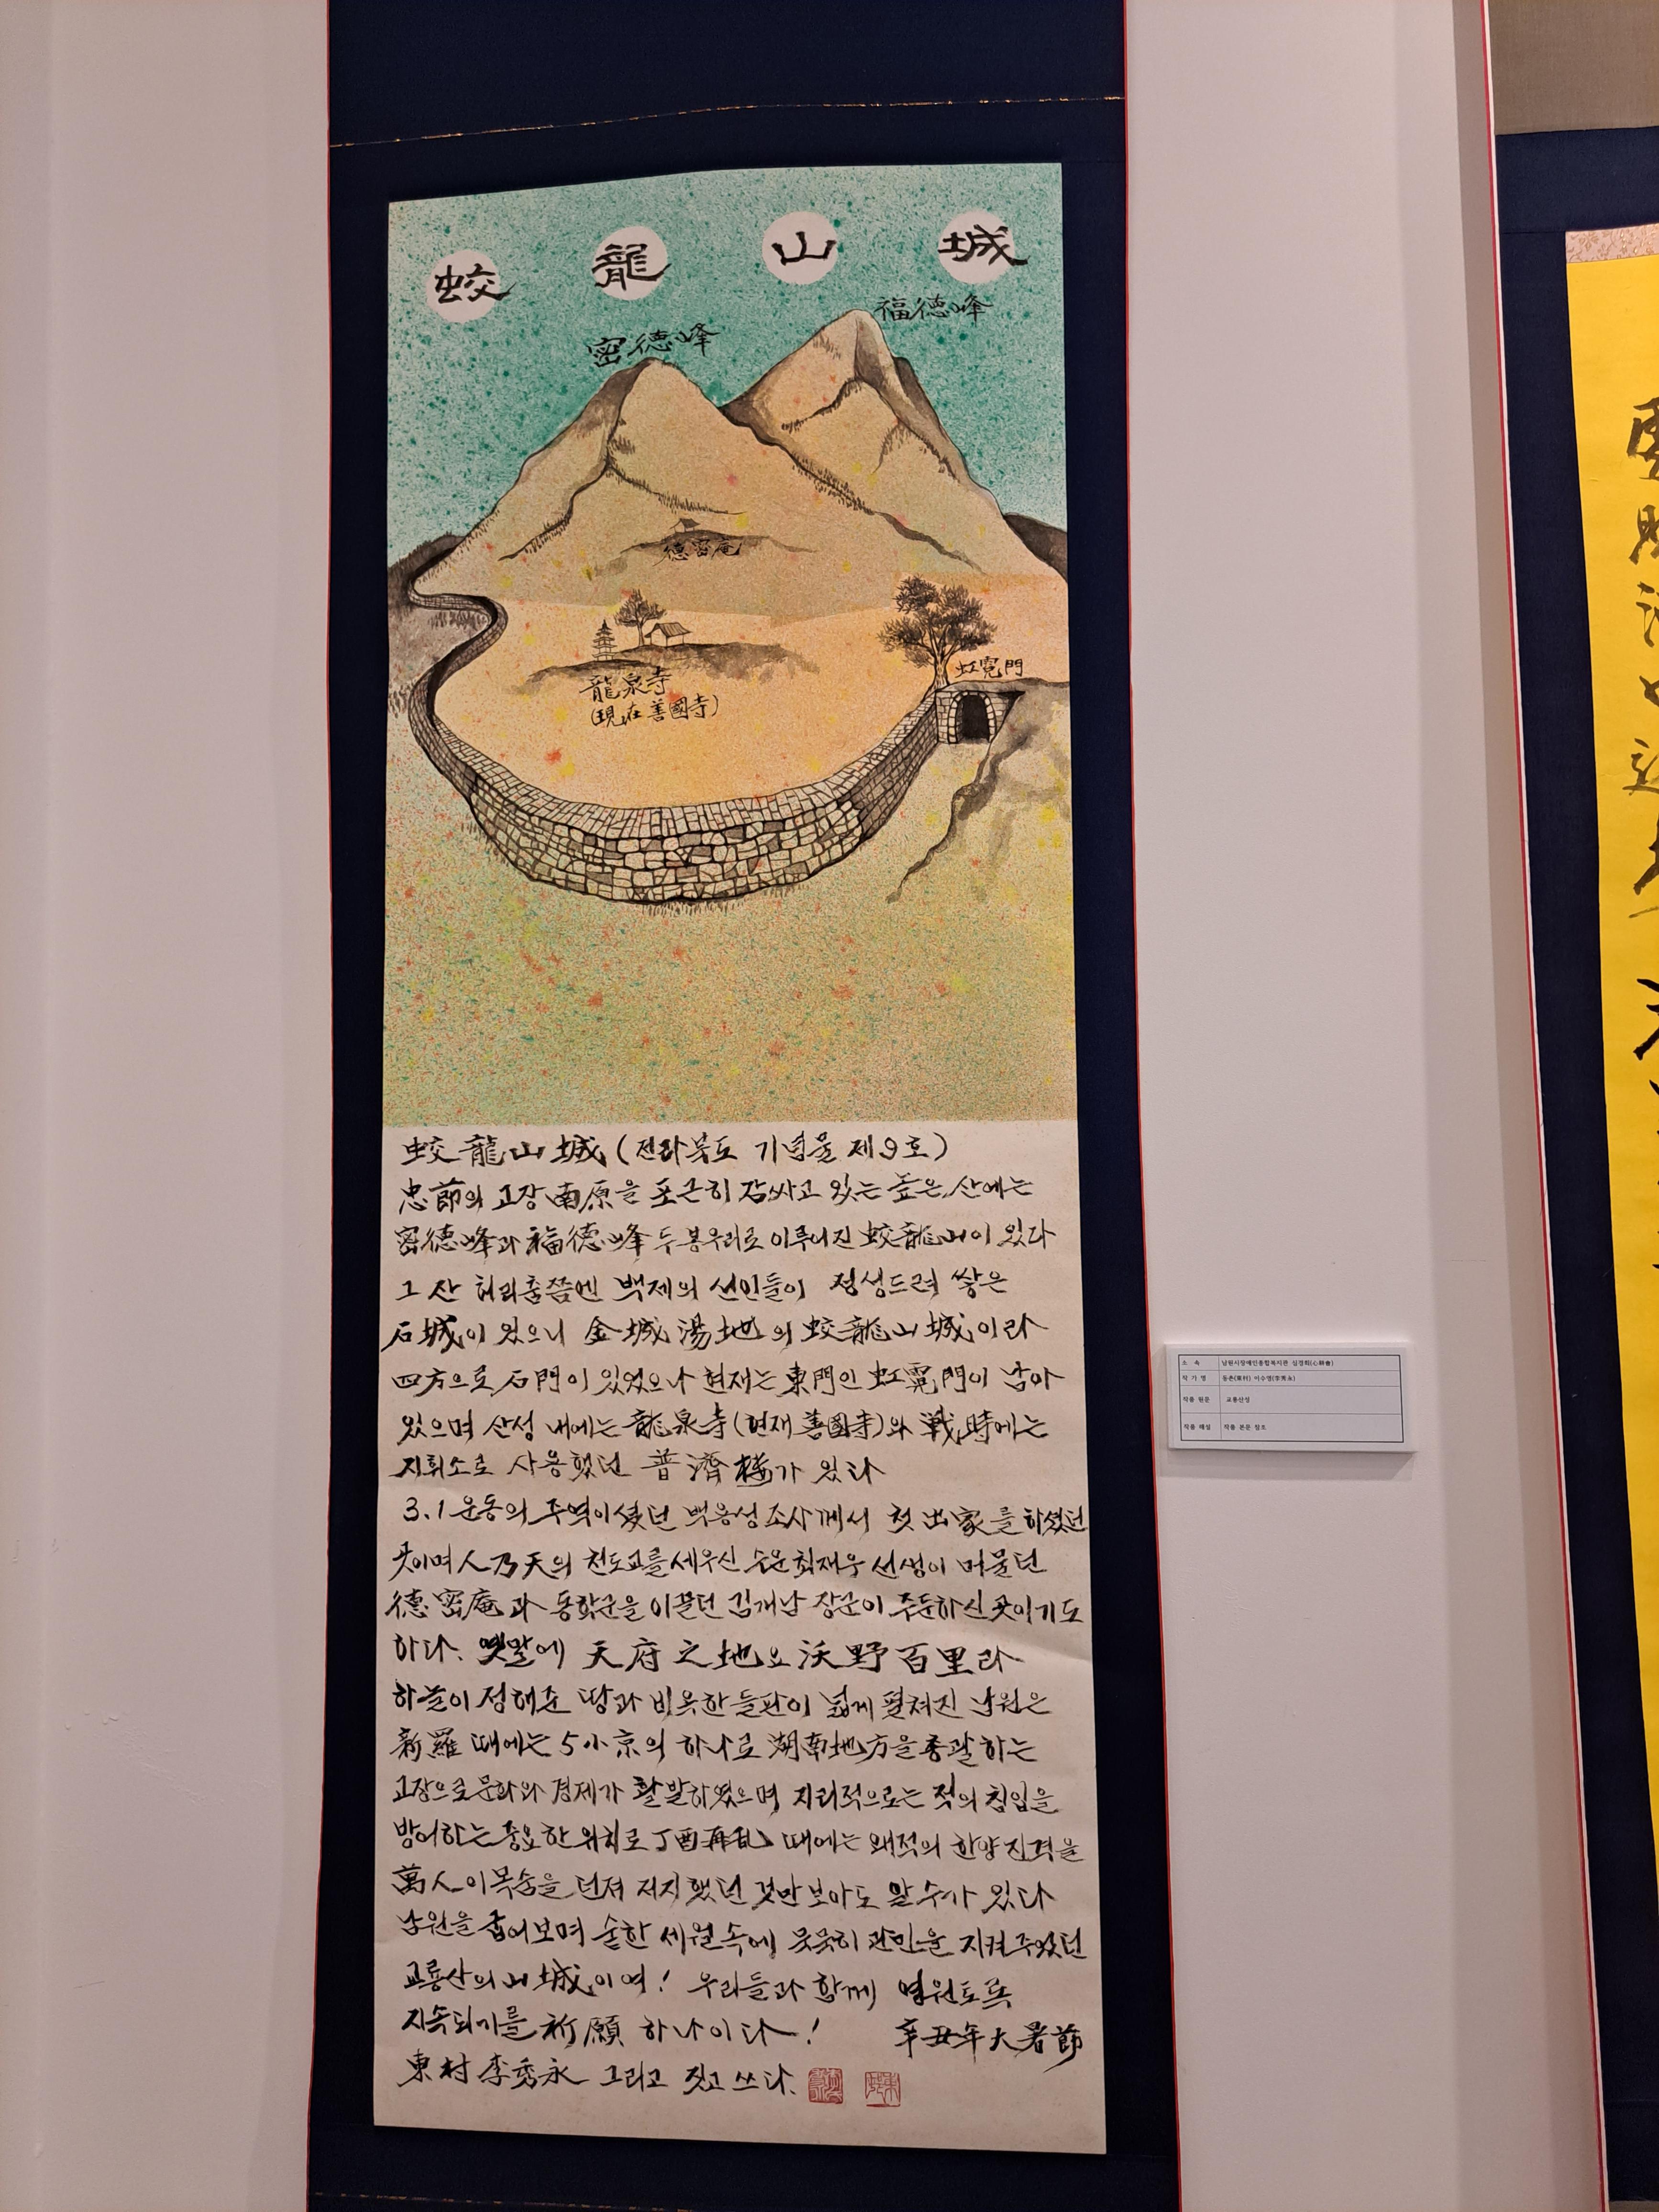 蛟龍山城
福德峰
密德峰
德密庵
虹霓門
龍泉寺
(現在 善國寺)
蛟龍山城 (전라북도 기념물 제9호)
忠節의 고장 南原을 포근히 감싸고 있는 높은 산에는
密德峰과 福德峰 두 봉우리로 이루어진 蛟龍山이 있다
그 산 허리춤쯤엔 백제의 선인들이 정성드려 쌓은
石城이 있으니 金城湯地의 蛟龍山城이라
四方으로 石門이 있었으나 현재는 東門인 虹霓門이 남아
있으며 산성 내에는 龍泉寺(현재 善國寺)와 戰時에는
지휘소로 사용했던 普濟樓가 있다
3.1운동의 주역이셨던 백용성조사께서 첫 出家를 하셨던
곳이며 人乃天의 천도교를 세우신 수운 최재우 선생이 머물던
德密庵과 동학군을 이끌던 김개남 장군이 주둔하신 곳이기도
하다. 옛말에 天府之地요 沃野百里라
하늘이 정해준 땅과 비옥한 들판이 넓게 펼쳐진 남원은
新羅 때에는 5小京의 하나로 湖南地方을 총괄하는
고장으로 문화와 경제가 활발하였으며 지리적으로는 적의 침입을
방어하는 중요한 위치로 丁酉再乱 때에는 왜적의 한양 진격을
萬人이 목숨을 던져 저지했던 것만 보아도 알 수가 있다
남원을 굽어보며 숱한 세월속에 묵묵히 관민을 지켜주었던
교룡산의 山城이여! 우리들과 함께 영원토록
지속되기를 祈願 하나이다! 辛丑年 大暑節
東村 李秀永 그리고 짓고 쓰다.
소 속 남원시장애인종합복지관 심경회(心耕會)
작 가 명 동촌(東村) 이수영(李秀永)
작품 원문 교룡산성
작품 해설 작품 본문 참조